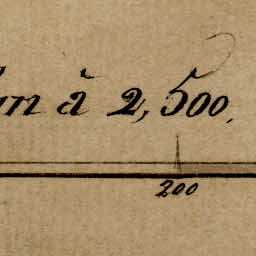 un à 2,500.
200